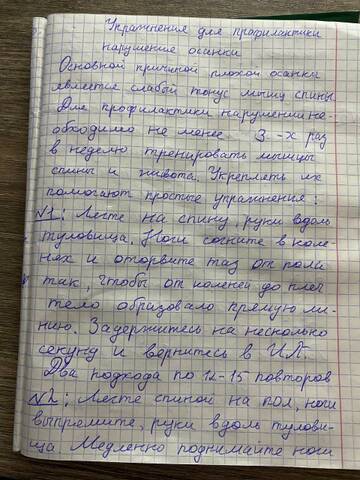 Упражнения для профилактики
нарушение осанки
Основной причиной плохой осанки
является слабый тонус мышц спины
Для профилактики нарушении не-
обходимо не менее 3-х раз
в неделю тренировать мышцы
спины и живота. Укреплять их
помогают простые упражнения:
№1: Лечте на спину, руки вдоль
туловища. Ноги согните в коле-
нях и оторвите таз от пола
так, чтобы от коленей до плеч
тело образовало прямую ли-
нию. Задержитесь на несколько
секунд и вернитесь в И.П.
Два подхода по 12-15 повторов
№2: Лечте спиной на пол, ноги
выпремите, руки вдоль тулови-
ща. Медленно поднимайте ноги